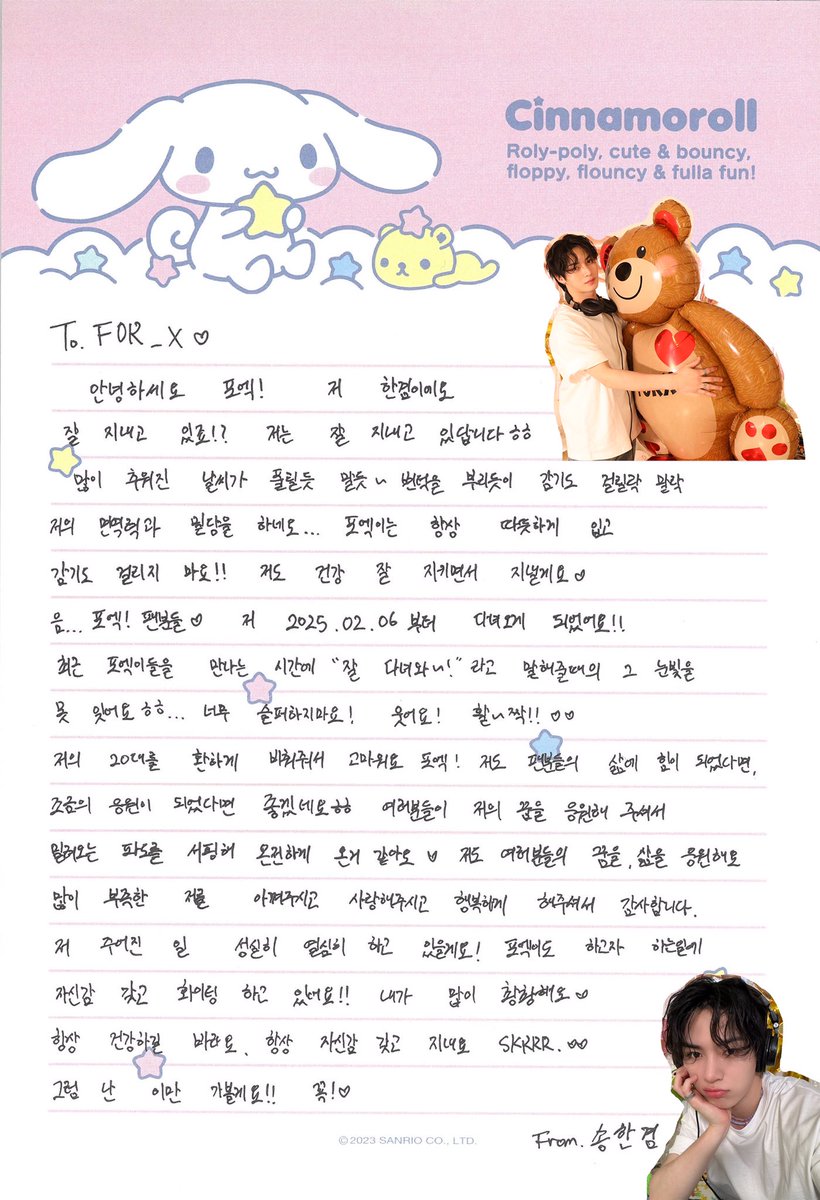 Cinnamoroll
Roly-poly, cute & bouncy,
floppy, flouncy & fulla fun!
To. FOR_X ♡
안녕하세요 포엑! 저 한겸이에요
잘 지내고 있죠!? 저는 잘 지내고 있답니다ㅎㅎ
많이 추워진 날씨가 풀릴듯 말듯~ 변덕을 부리듯이 감기도 걸릴락 말락
저의 면역력과 밀당을 하네요... 포엑이는 항상 따뜻하게 입고
감기도 걸리지 마요!! 저도 건강 잘 지키면서 지낼게요♡
음... 포엑! 팬분들♡ 저 2025.02.06부터 다녀오게 되었어요!!
최근 포엑이들을 만나는 시간에 "잘 다녀와~!"라고 말해줄때의 그 눈빛을
못 잊어요ㅎㅎ... 너무 슬퍼하지마요! 웃어요! 활~짝!! ♡♡
저의 20대를 환하게 비춰줘서 고마워요 포엑! 저도 팬분들의 삶에 힘이 되었다면,
조금의 응원이 되었다면 좋겠네요ㅎㅎ 여러분들이 저의 꿈을 응원해 주셔서
밀려오는 파도를 서핑해 온전하게 온거 같아요♡ 저도 여러분들의 꿈을, 삶을 응원해요
많이 부족한 저를 아껴주시고 사랑해주시고 행복하게 해주셔서 감사합니다.
저 주어진 일 성실히 열심히 하고 있을게요! 포엑이도 하고자 하는일에
자신감 갖고 화이팅 하고 있어요!! 내가 많이 황황해요♡
항상 건강하길 바라요. 항상 자신감 갖고 지내요 SKRRR.♡♡
그럼 난 이만 가볼게요!! 꼭!♡
©2023 SANRIO CO., LTD.
From. 송한겸